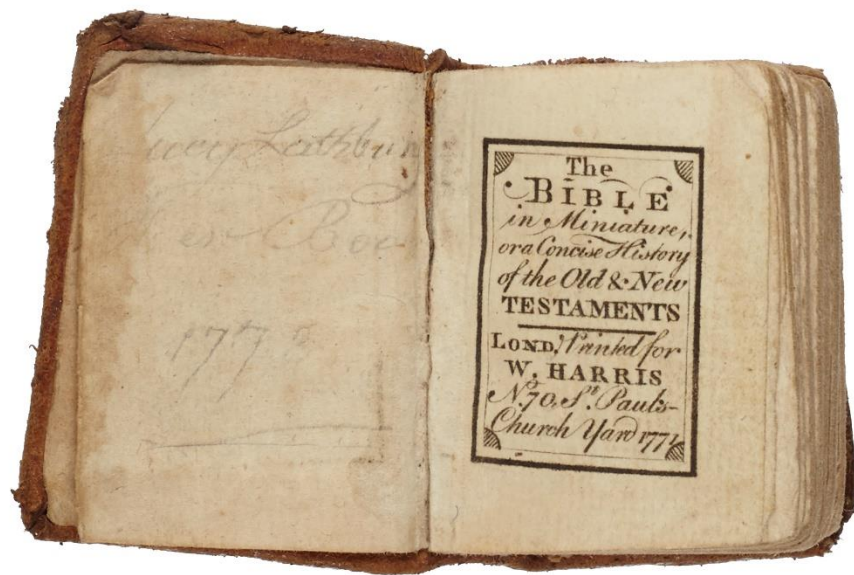 Lucy Lathbun
Her Boo
177
The
BIBLE
in Miniature,
or a Concise History
of the Old & New
TESTAMENTS
LOND. Printed for
W. HARRIS
No. 70, St. Pauls-
Church Yard 1771